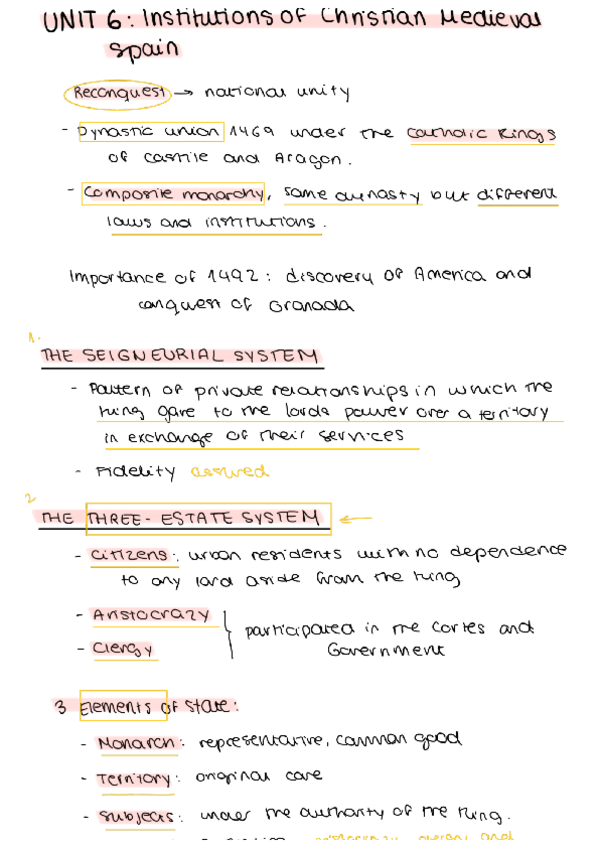 UNIT 6: Institutions of Christian Medieval
Spain
Reconquest → national unity
- Dynastic union 1469 under the Catholic Kings
of Castile and Aragon.
- Composite monarchy, same dynasty but different
laws and institutions.
Importance of 1492: discovery of America and
conquest of Granada
1.
THE SEIGNEURIAL SYSTEM
- Pattern of private relationships in which the
king gave to the lords power over a territory
in exchange of their services
- Fidelity assured
2
THE THREE-ESTATE SYSTEM ←
- Citizens: urban residents with no dependence
to any lord aside from the king
- Aristocrazy
- Clergy
participated in the Cortes and
Government
3 Elements of state:
- Monarch: representative, common good
- Territory: original core
- Subjects: under the authority of the king.